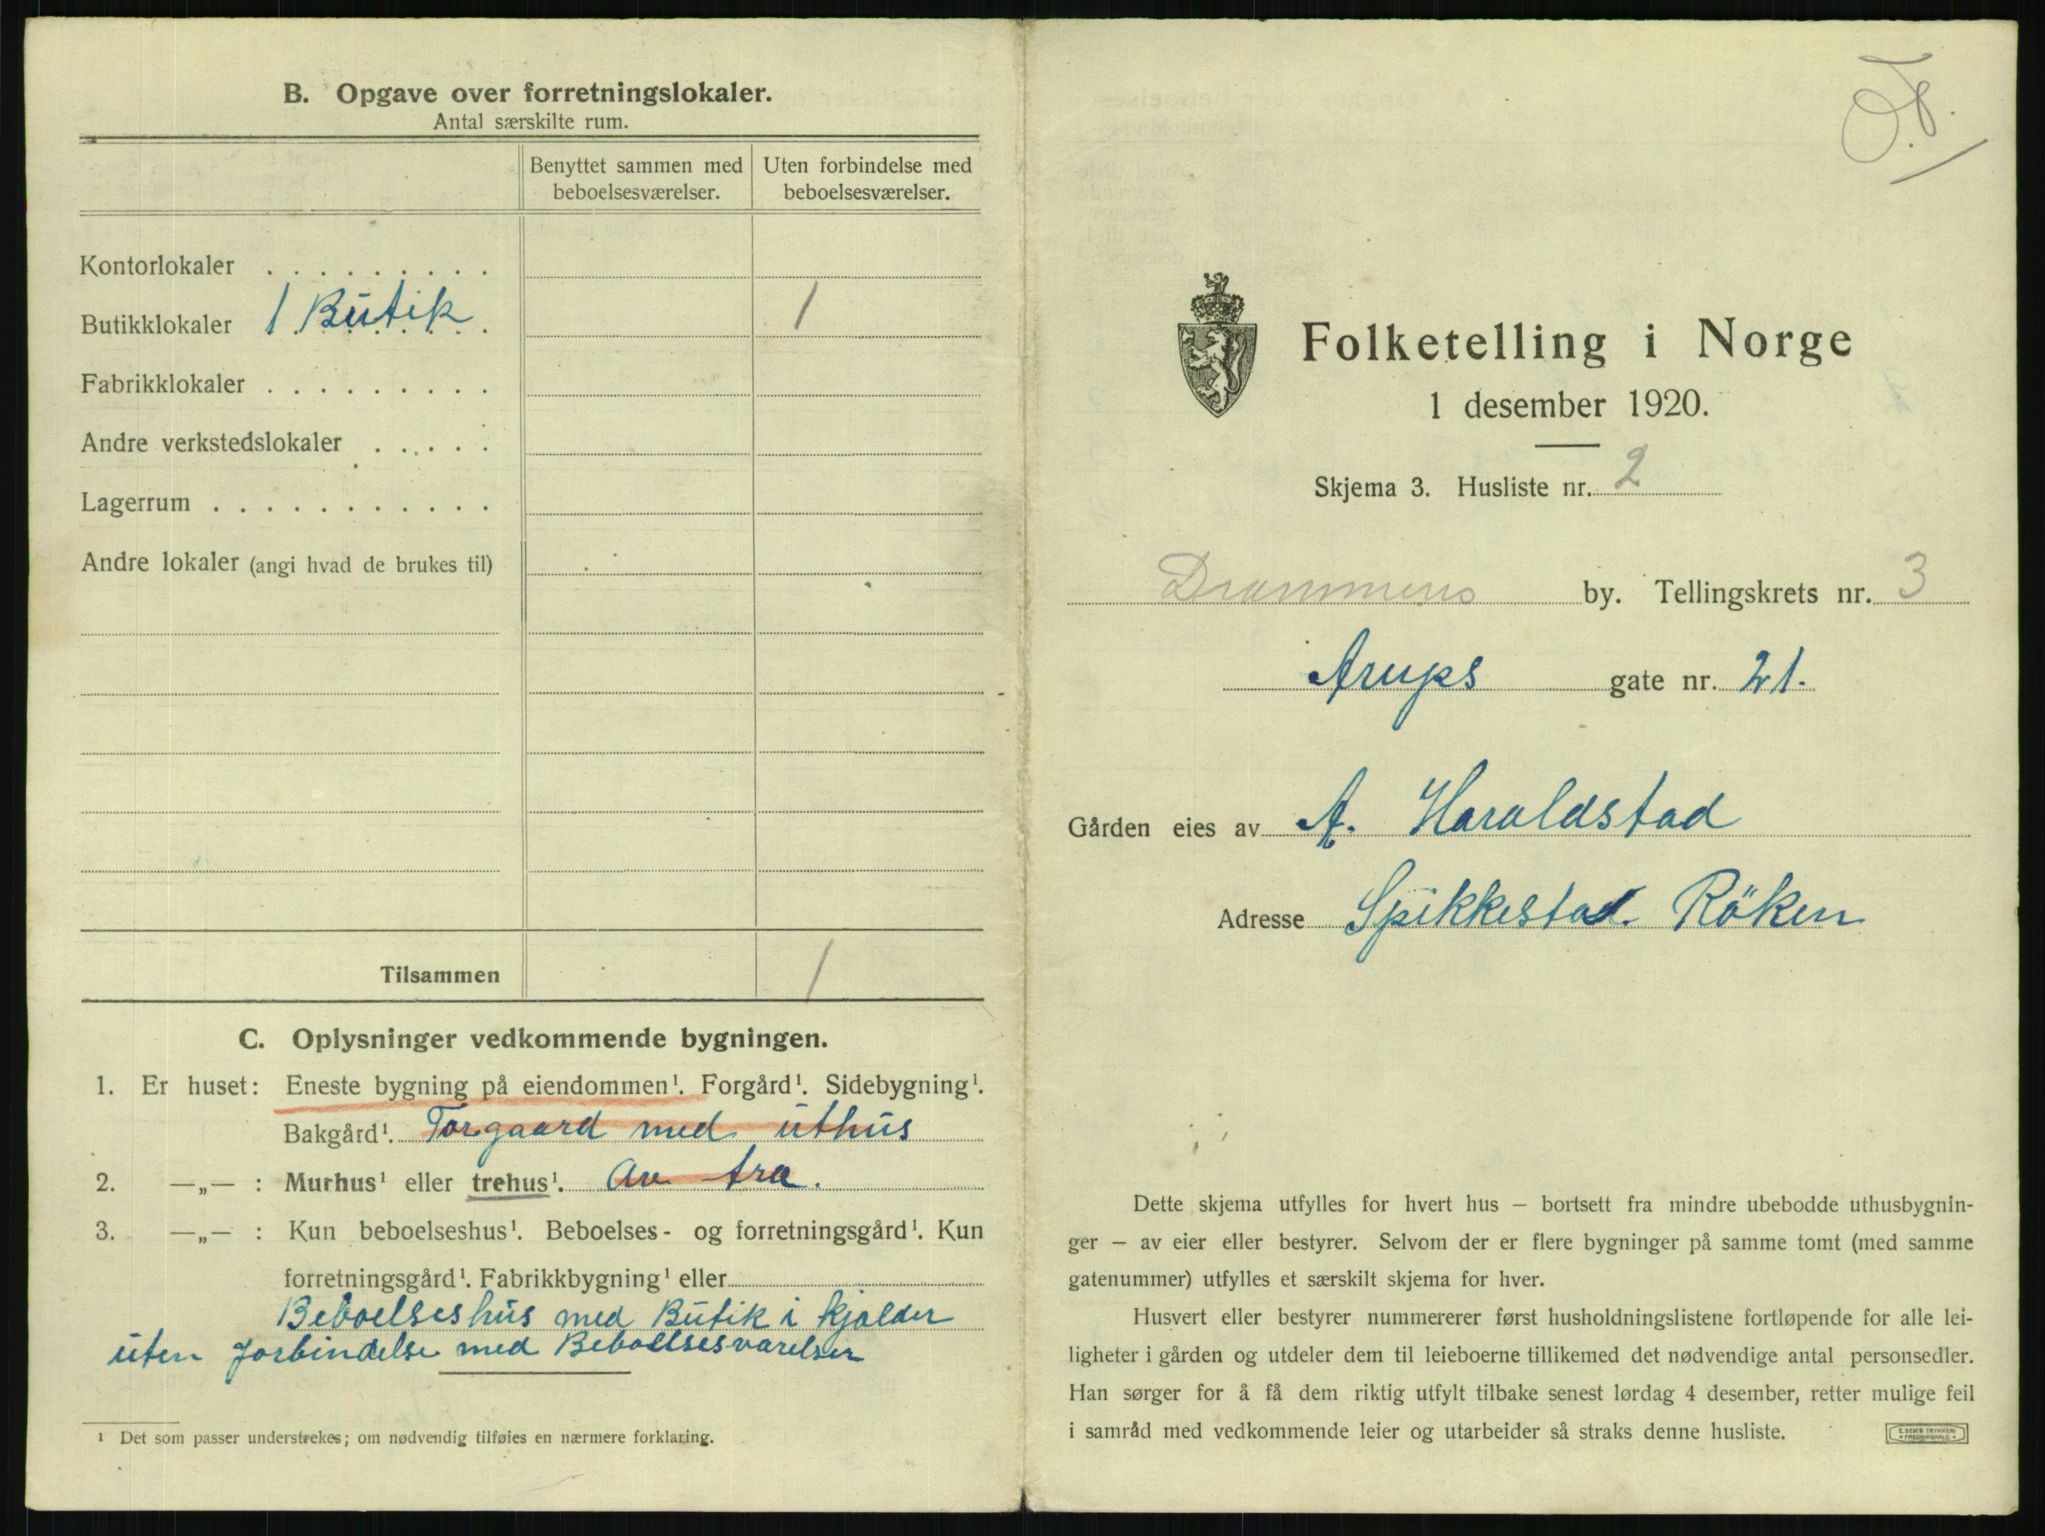 B. Opgave over forretningslokaler.
Antal særskilte rum.
Benyttet sammen med beboelsesværelser.
Uten forbindelse med beboelsesværelser.
Kontorlokaler . . . . . . . . .
Butikklokaler 1 Butik 1
Fabrikklokaler . . . . . . . . .
Andre verkstedslokaler . . . . .
Lagerrum . . . . . . . . . . .
Andre lokaler (angi hvad de brukes til)
Tilsammen 1
C. Oplysninger vedkommende bygningen.
1. Er huset: Eneste bygning på eiendommen¹. Forgård¹. Sidebygning¹.
Bakgård¹. Torgaard med uthus
2. —„— : Murhus¹ eller trehus¹. av træ.
3. —„— : Kun beboelseshus¹. Beboelses- og forretningsgård¹. Kun
forretningsgård¹. Fabrikkbygning¹ eller
Beboelseshus med Butik i kjelder
uten forbindelse med Beboelsesværelser
¹ Det som passer understrekes; om nødvendig tilføies en nærmere forklaring.
Folketelling i Norge
1 desember 1920.
Skjema 3. Husliste nr. 2
Drammens by. Tellingskrets nr. 3
Arups gate nr. 21.
Gården eies av A. Haraldstad
Adresse Spikkestad. Röken
Dette skjema utfylles for hvert hus – bortsett fra mindre ubebodde uthusbygnin-
ger – av eier eller bestyrer. Selvom der er flere bygninger på samme tomt (med samme
gatenummer) utfylles et særskilt skjema for hver.
Husvert eller bestyrer nummererer først husholdningslistene fortløpende for alle lei-
ligheter i gården og utdeler dem til leieboerne tillikemed det nødvendige antal personsedler.
Han sørger for å få dem riktig utfylt tilbake senest lørdag 4 desember, retter mulige feil
i samråd med vedkommende leier og utarbeider så straks denne husliste.
E. SEM'S TRYKKERI
FREDRIKSHALD